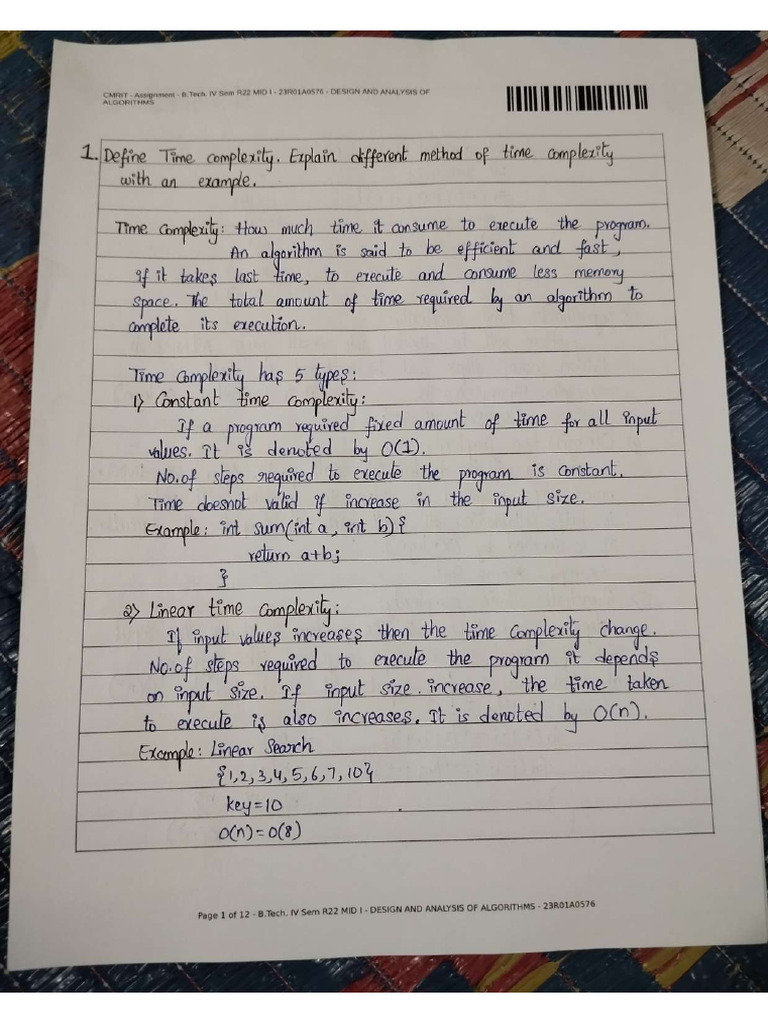 CMRIT - Assignment - B.Tech. IV Sem R22 MID I - 23R01A0576 - DESIGN AND ANALYSIS OF
ALGORITHMS
1. Define Time complexity. Explain different method of time complexity
with an example.
Time Complexity: How much time it consume to execute the program.
An algorithm is said to be efficient and fast,
if it takes last time, to execute and consume less memory
space. The total amount of time required by an algorithm to
complete its execution.
Time Complexity has 5 types:
1) Constant time complexity:
If a program required fixed amount of time for all input
values. It is denoted by O(1).
No.of steps required to execute the program is constant.
Time doesnot valid if increase in the input size.
Example: int sum(int a, int b){
return a+b;
}
2) Linear time Complexity:
If input values increases then the time Complexity change.
No.of steps required to execute the program it depends
on input size. If input size increase, the time taken
to execute is also increases. It is denoted by O(n).
Example: Linear Search
{1,2,3,4,5,6,7,10}
key=10
O(n)=O(8)
Page 1 of 12 - B.Tech. IV Sem R22 MID I - DESIGN AND ANALYSIS OF ALGORITHMS - 23R01A0576